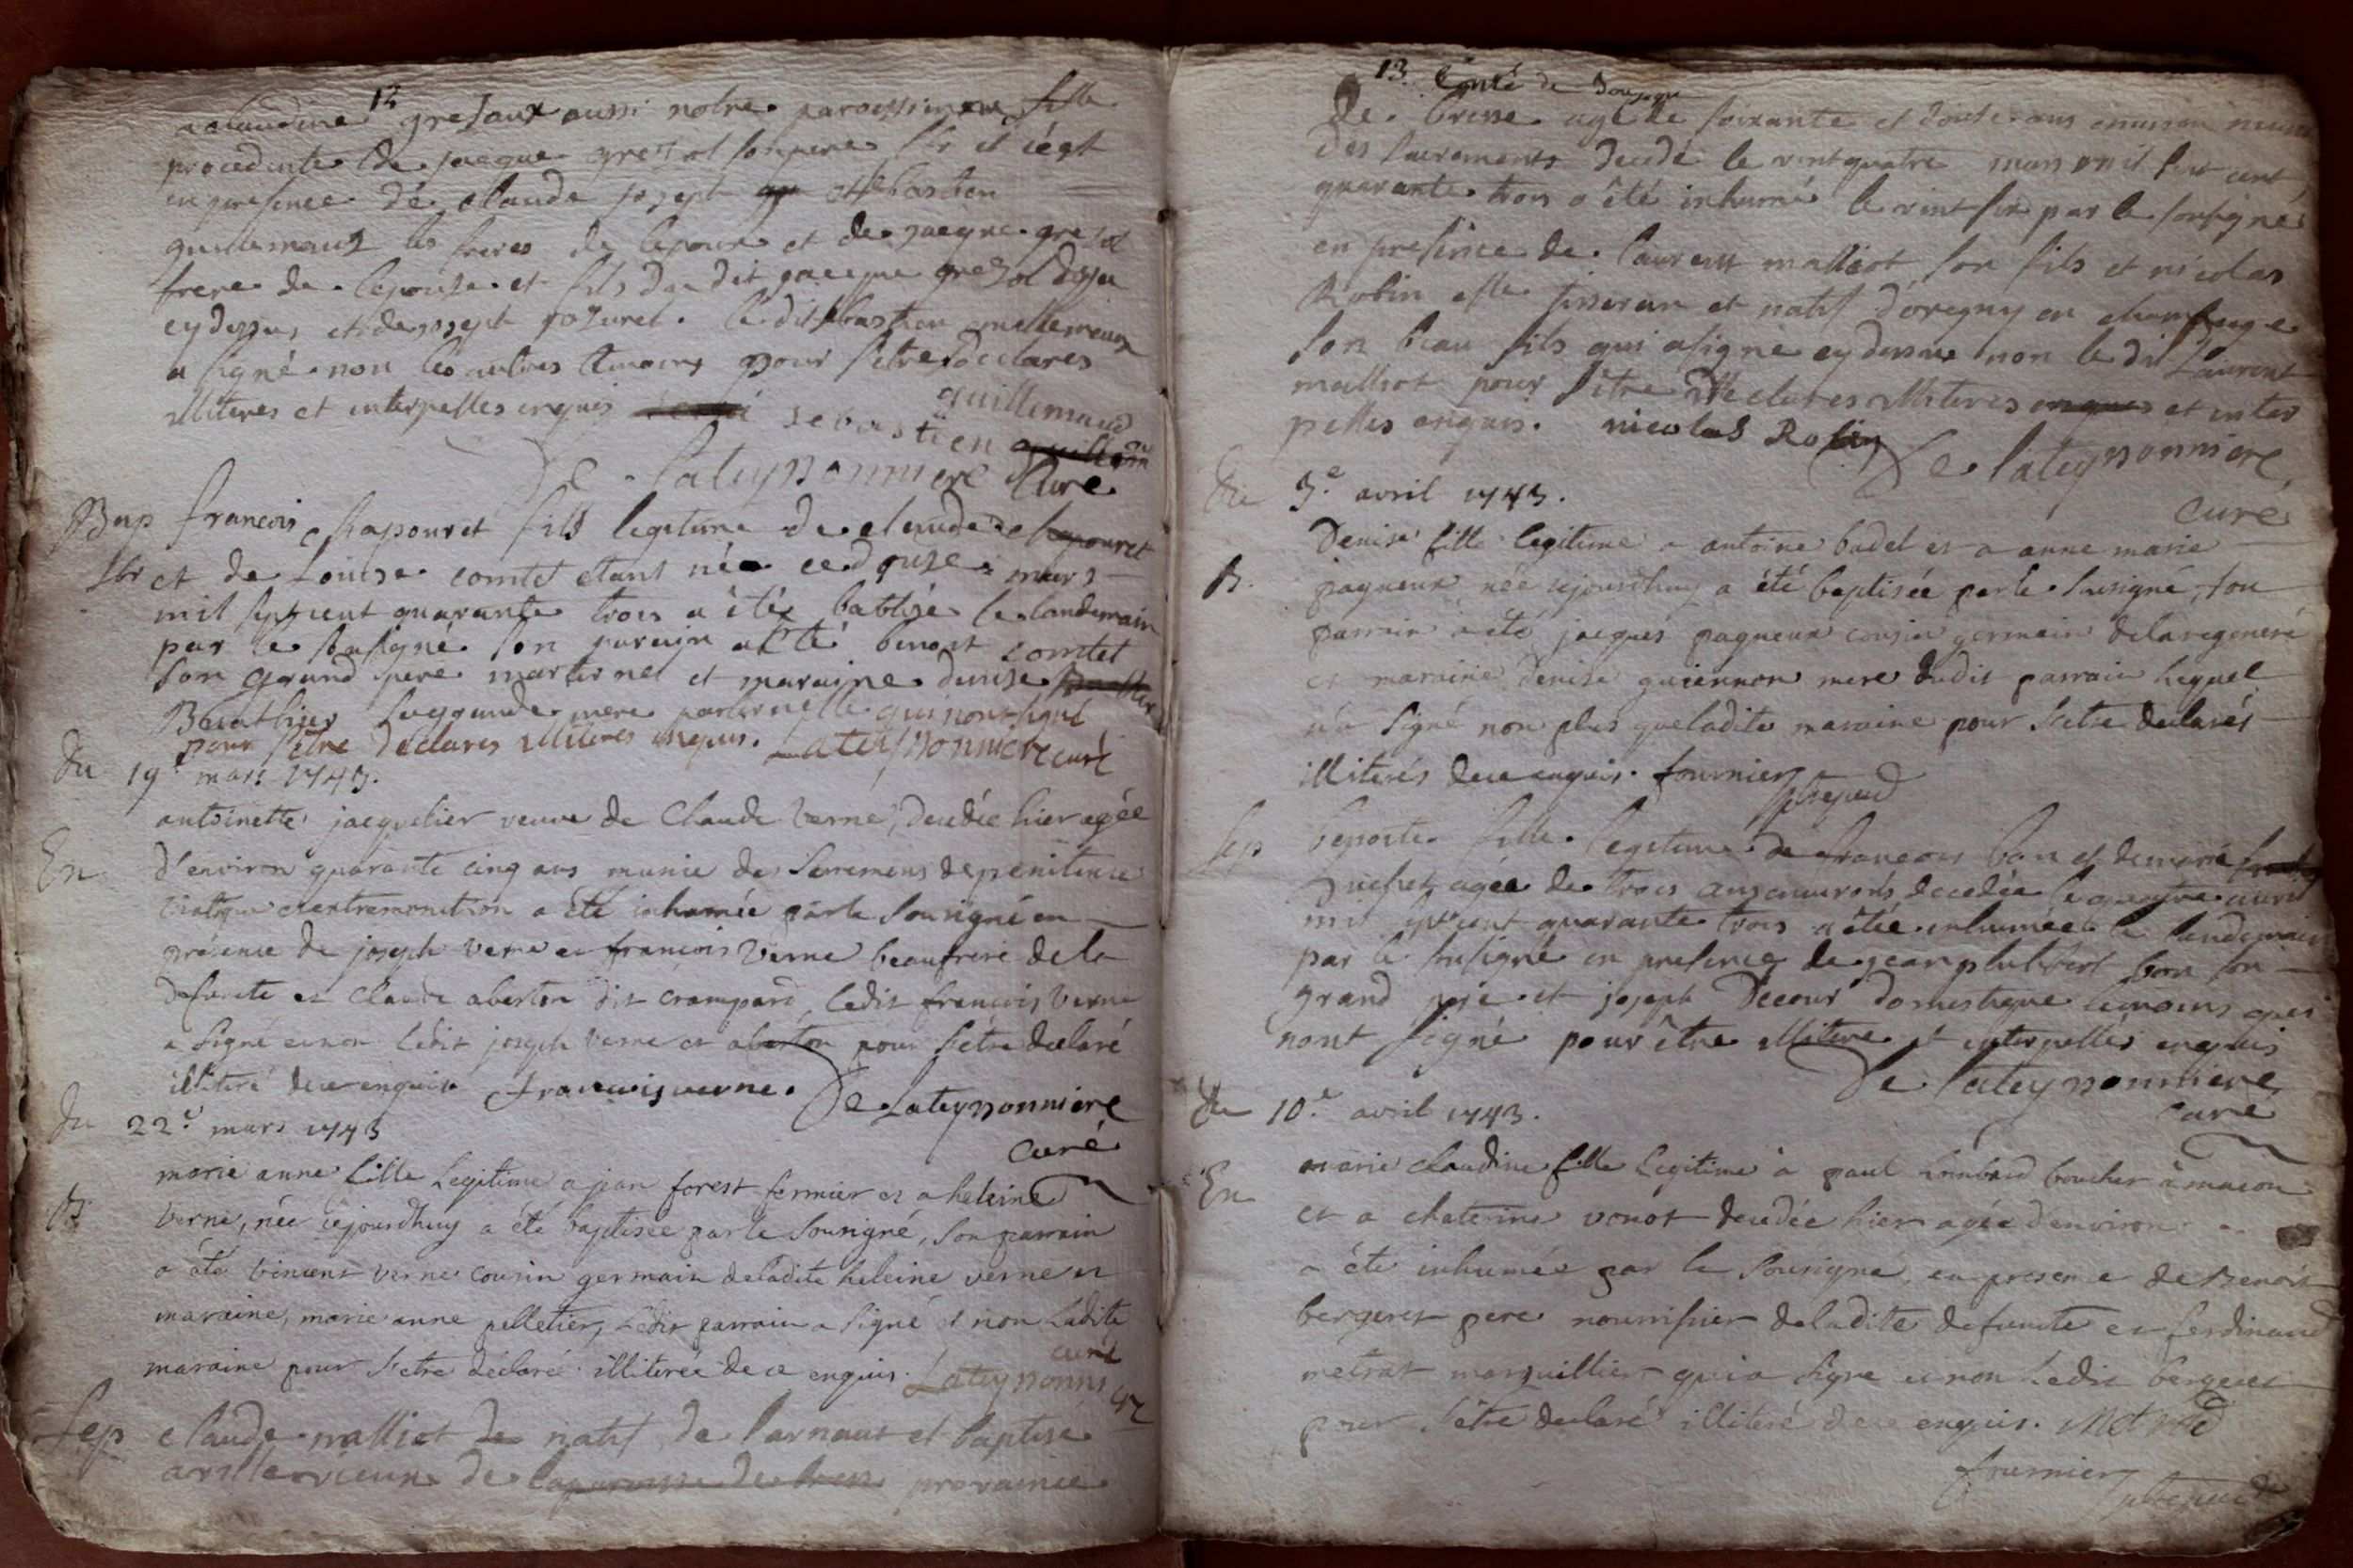 12
a claudine gresaux aussi notre paroissienne fille
procedente de jacque gresol son pere
en presence de claude joseph et sebastien
guillemaux les freres de lepoux et de jacque gresol
frere de lepouse et fils du dit jacque gresol
cy dessus et de joseph le dit sebastien guillemeaux
a signé non les autres temoins pour s'etre declares
illiteres et interpelles enquis sebastien guillemaud
De Lateyssonniere Curé
Bap francois chapouret fils legitime de claude chapouret
et de Louise comtet etant née ce douse mars
mil sept cent quarante trois a été batisé le landemain
par le sousigné son parain a été benoit comtet
son grand pere marternel et maraine denise
Bouathier sa grande mere paternelle qui nont signé
pour s'etre declares illiteres enquis. Lateyssonniere curé
Du 19e mars 1743.
antoinette jacquelier veuve de Claude Verne, decedée hier agée
En d'environ quarante cinq ans munie des Sacremens de penitence
viatique et extremonction a été inhumée par le Sousigné en
présence de joseph verne et francois Verne beaufrere de la
defuncte et Claude aberton dit crampard, ledit françois Verne
a Signé et non Ledit joseph Verne et aberton pour s'etre declaré
illiteré de ce enquis francois verne. De Lateyssonniere
curé
Du 22e mars 1743
marie anne fille Legitime a jean forest fermier et a heleine
B. Verne, née cejourdhuy a été baptisée par le Sousigné, son parrain
a été vincent verne cousin germain de ladite heleine verne et
maraine, marie anne pelletier, Ledit parrain a signé et non Ladite
maraine pour s'etre declaré illiterée de ce enquis. Lateyssonniere curé
Sep claude malliot natif de larnaut et baptisé
de la paroisse de provaince
13. Comté de Bourgogne
de bresse agé de soixante et douse ans environ muni
des sacrements decedé le vint quatre mars mil sept cent
quarante trois a été inhumé le vint six par le sousigné
en presence de laurent malliot son fils et nicolas
Robin tisseran et natif d'origny en champagne
son beau fils qui a signé cy dessus non le dit Laurent
malliot pour s'être declares illiteres et inter
pelles enquis. nicolas Robin De Lateyssonniere
curé
Du 3e avril 1743.
Denise fille legitime a antoine badel et a anne marie
B. paqueux née cejourdhuy a été baptisée par le sousigné, son
parrain a été jacques paqueux cousin germain de la regeneré
et maraine denise guiennon mere dudit parrain lequel
n'a signé non plus que ladite maraine pour s'etre declarés
illiterés de ce enquis. fournier
Sep fille legitime de francois bon et de marie
agée de trois ans environs decedée le quatre avril
mil sept cent quarante trois a étée inhumée le landemain
par le sousigné en presence de jean philibert bon son
grand pere et joseph Decour domestique temoins qui
nont signé pour être illitere et interpellés enquis
De Lateyssonniere
curé
Du 10e avril 1743.
marie claudine fille legitime à paul Lombard boucher à macon
En et a chaterine vonot decedée hier agée d'environ
a été inhumée par le sousigné, en presence de Benoit
bergeret pere nourrissier de ladite defuncte et ferdinand
metrat marguillier qui a signé et non Ledit bergeret
pour s'être declaré illiteré de ce enquis. Metrad
fournier